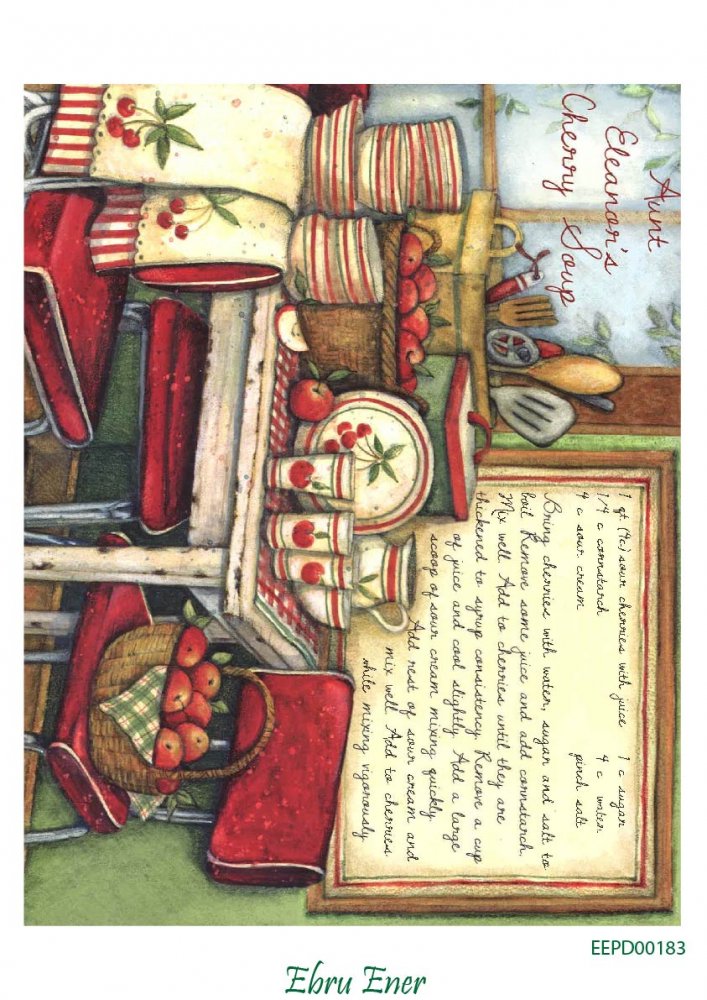 Aunt
Eleanor's
Cherry Soup
1 qt. (4c) sour cherries with juice 1 c sugar
1/4 c cornstarch 4 c water
4 c sour cream pinch salt
Bring cherries with water, sugar and salt to
boil. Remove some juice and add cornstarch.
Mix well. Add to cherries until they are
thickened to syrup consistency. Remove a cup
of juice and cool slightly. Add a large
scoop of sour cream mixing quickly.
Add rest of sour cream and
mix well. Add to cherries
while mixing vigorously
EEPD00183
Ebru Ener